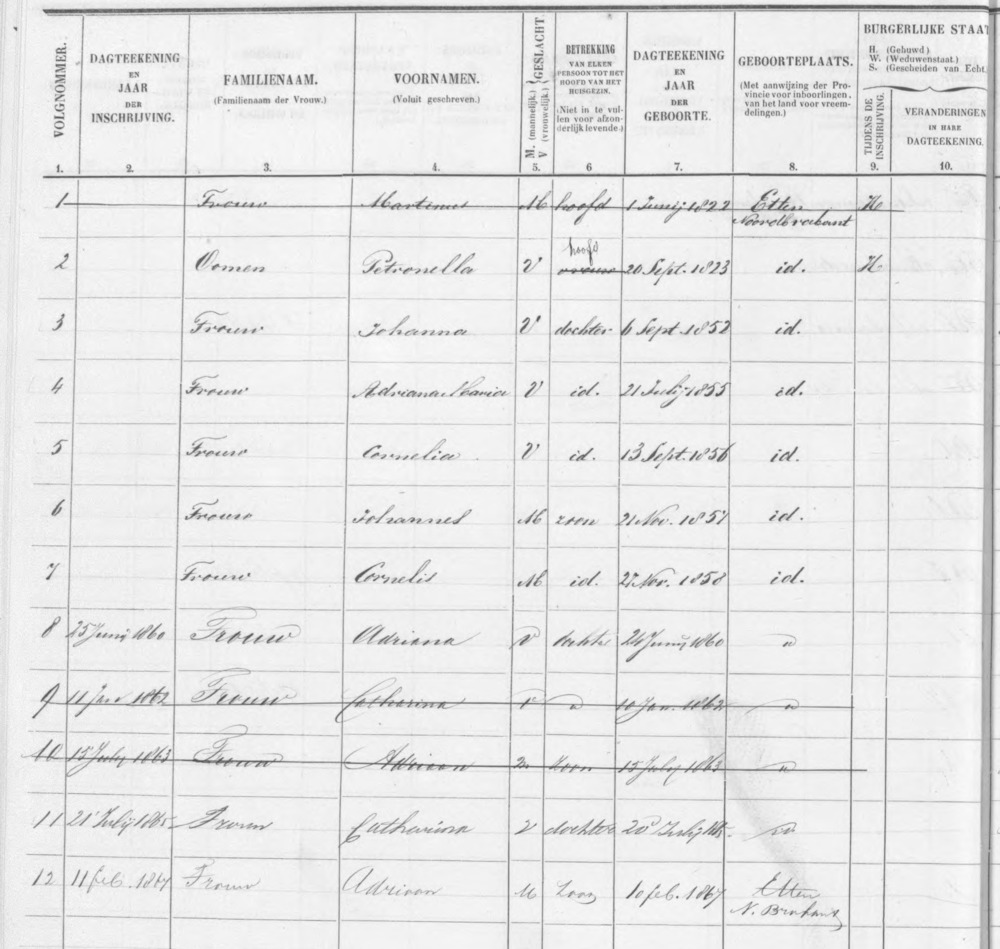 VOLGNOMMER.
DAGTEEKENING
EN
JAAR
DER
INSCHRIJVING.
FAMILIENAAM.
(Familienaam der Vrouw.)
VOORNAMEN.
(Voluit geschreven.)
M. (mannelijk.) V (vrouwelijk.) GESLACHT
BETREKKING
VAN ELKEN
PERSOON TOT HET
HOOFD VAN HET
HUISGEZIN.
(Niet in te vul-
len voor afzon-
derlijk levende.)
DAGTEEKENING
EN
JAAR
DER
GEBOORTE.
GEBOORTEPLAATS.
(Met aanwijzing der Pro-
vincie voor inboorlingen,
van het land voor vreem-
delingen.)
BURGERLIJKE STAAT
H. (Gehuwd)
W. (Weduwenstaat.)
S. (Gescheiden van Echt.
TIJDENS DE
INSCHRIJVING.
VERANDERINGEN
IN HARE
DAGTEEKENING.
1. 2. 3. 4. 5. 6 7. 8. 9. 10.
1 Trouw Martinus M hoofd 1 Junij 1822 Etten H
Noordbrabant
hoofd
2 Oomen Petronella V vrouw 20 Sept. 1823 id. H
3 Trouw Johanna V dochter 6 Sept. 1852 id.
4 Trouw Adriana Maria V id. 21 Julij 1855 id.
5 Trouw Cornelia V id. 13 Sept. 1856 id.
6 Trouw Johannes M zoon 21 Nov. 1857 id.
7 Trouw Cornelis M id. 27 Nov. 1858 id.
8 25 Junij 1860 Trouw Adriana V dochter 24 Junij 1860 "
9 11 Jan 1862 Trouw Catharina V " 10 Jan. 1862 "
10 15 July 1863 Trouw Adriaan m. zoon 15 July 1863 "
11 21 Julij 1865 Trouw Catharina V dochter 20 Julij 1865.
12 11 feb. 1867 Trouw Adriaan M Zoon 10 feb. 1867 Etten
N. Brabant